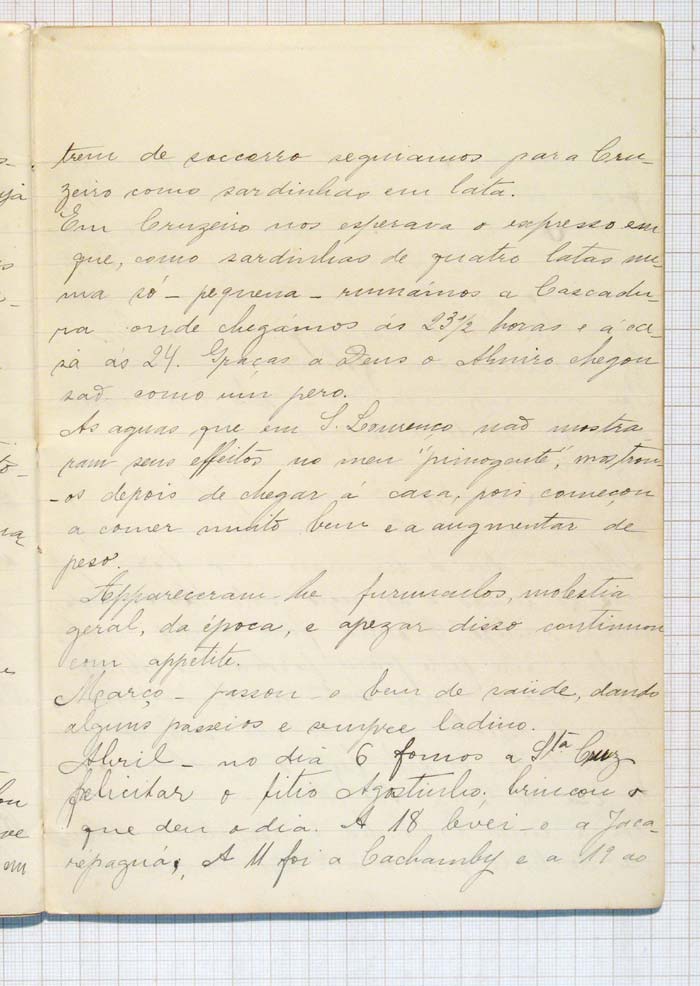 trem de soccorro seguiamos para Cru-
zeiro como sardinhas em lata.
Em Cruzeiro nos esperava o expresso em
que, como sardinhas de quatro latas nu-
ma só - pequena - rumámos a Cascadu-
ra onde chegámos ás 23½ horas e á ca-
sa ás 24. Graças a Deus o Almiro chegou
saõ como um pero.
As aguas que em S. Lourenço naõ mostra
ram seus effeitos no meu "pimogente", mostrou-
-os depois de chegar á casa, pois começou
a comer muito bem e a augmentar de
peso.
Appareceram-lhe furunculos, molestia
geral, da época, e apezar disso continuou
com appetite.
Março - passou-o bem de saüde, dando
alguns passeios e sempre ladino.
Abril - no dia 6 fomos a Sta Cruz
felicitar o titio Agostinho; brincou o
que deu o dia. A 18 levei-o a Jaca-
répaguá; A 11 foi a Cachamby e a 19 ao